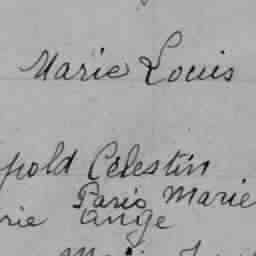 Marie Louis
pold Célestin
Paris Marie
rie Ange